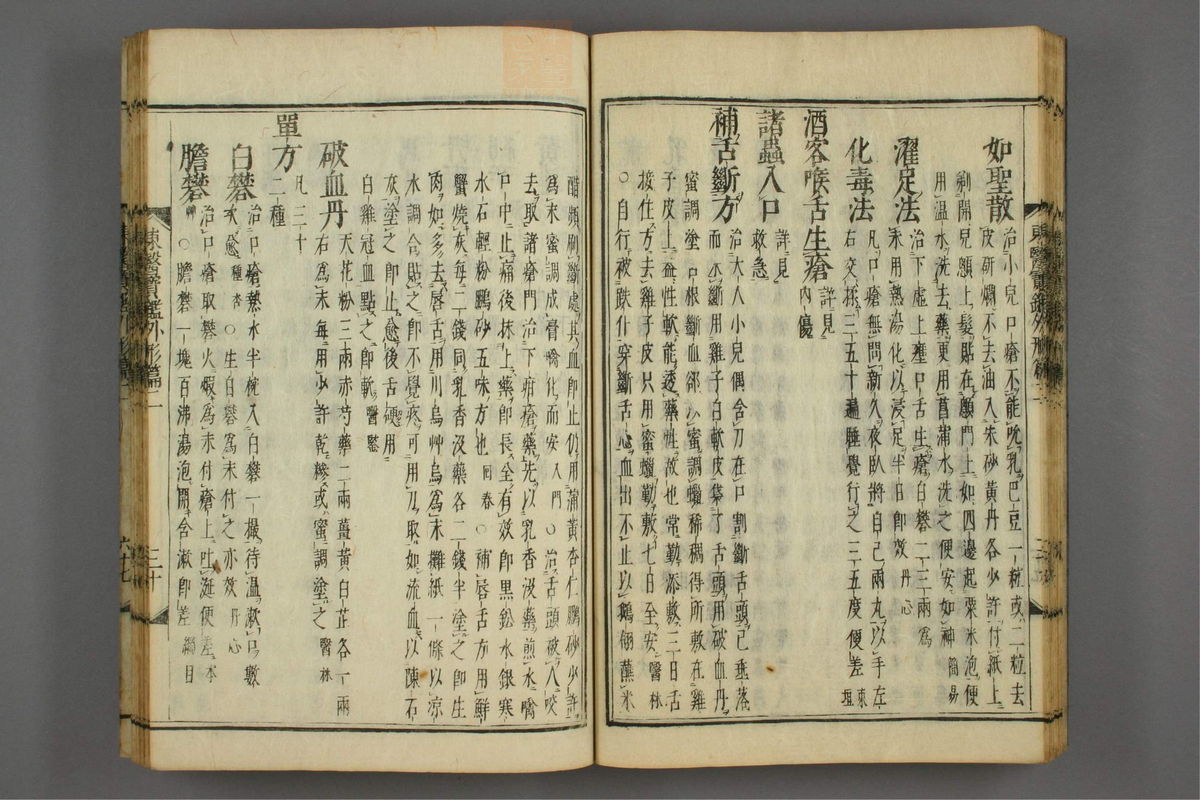 如聖散 治小兒口瘡不能吮乳巴豆一粒或二粒去
皮研爛不去油入朱砂黃丹各少許付紙上
剃開兒顖上髮貼在顖門上如四邊起粟米泡便
用溫水洗去藥更用菖蒲水洗之便安如神 簡易
濯足法 治下虛上壅口舌生瘡白礬二三兩爲
末用熱湯化以浸足半日卽效 丹心
化毒法 凡口瘡無問新久夜臥將自己兩丸以手左
右交揉三五十遍睡覺行之三五度便差 東垣
酒客喉舌生瘡 詳見內傷
諸蟲入口 詳見救急
補舌斷方 治大人小兒偶含刀在口割斷舌頭已垂落
而不斷用雞子白軟皮袋了舌頭用破血丹
蜜調塗口根斷血郤以蜜調蠟稀稠得所敷在雞
子皮上盖性軟能透藥性故也常勤添敷三日舌
接住方去雞子皮只用蜜蠟勤敷七日至安 醫林
○自行被跌什穿斷舌心血出不止以鵝翎蘸米
醋頻刷斷處其血卽止仍用蒲黃杏仁鵬砂少許
爲末蜜調成膏噙化而安 入門 ○治舌頭破人咬
去取諸瘡門治下疳瘡藥先以乳香沒藥煎水噙
口中止痛後抹上藥卽長全有效卽黑鈆水銀寒
水石輕粉鵬砂五味方也 回春 ○補唇舌方用鮮
蟹燒灰每二錢同乳香沒藥各二錢半塗之卽生
肉如多去唇舌用川烏艸烏爲末攤紙一條以涼
水調合貼之卽不覺疼可用刀取如流血以陳石
灰塗之卽止愈後舌硬用
白雞冠血點之卽軟 醫鑒
破血丹 天花粉三兩赤芍藥二兩薑黃白芷各一兩
右爲末每用少許乾糝或蜜調塗之 醫林
單方 凡三十二種
白礬 治口瘡熱水半椀入白礬一撮待溫漱口數
次愈 種杏 ○生白礬爲末付之亦效 丹心
膽礬 治口瘡取礬火煆爲末付瘡上吐涎便差 本
艸 ○膽礬一塊百沸湯泡開含漱卽差 綱目
東醫寶鑑外形篇二 三十